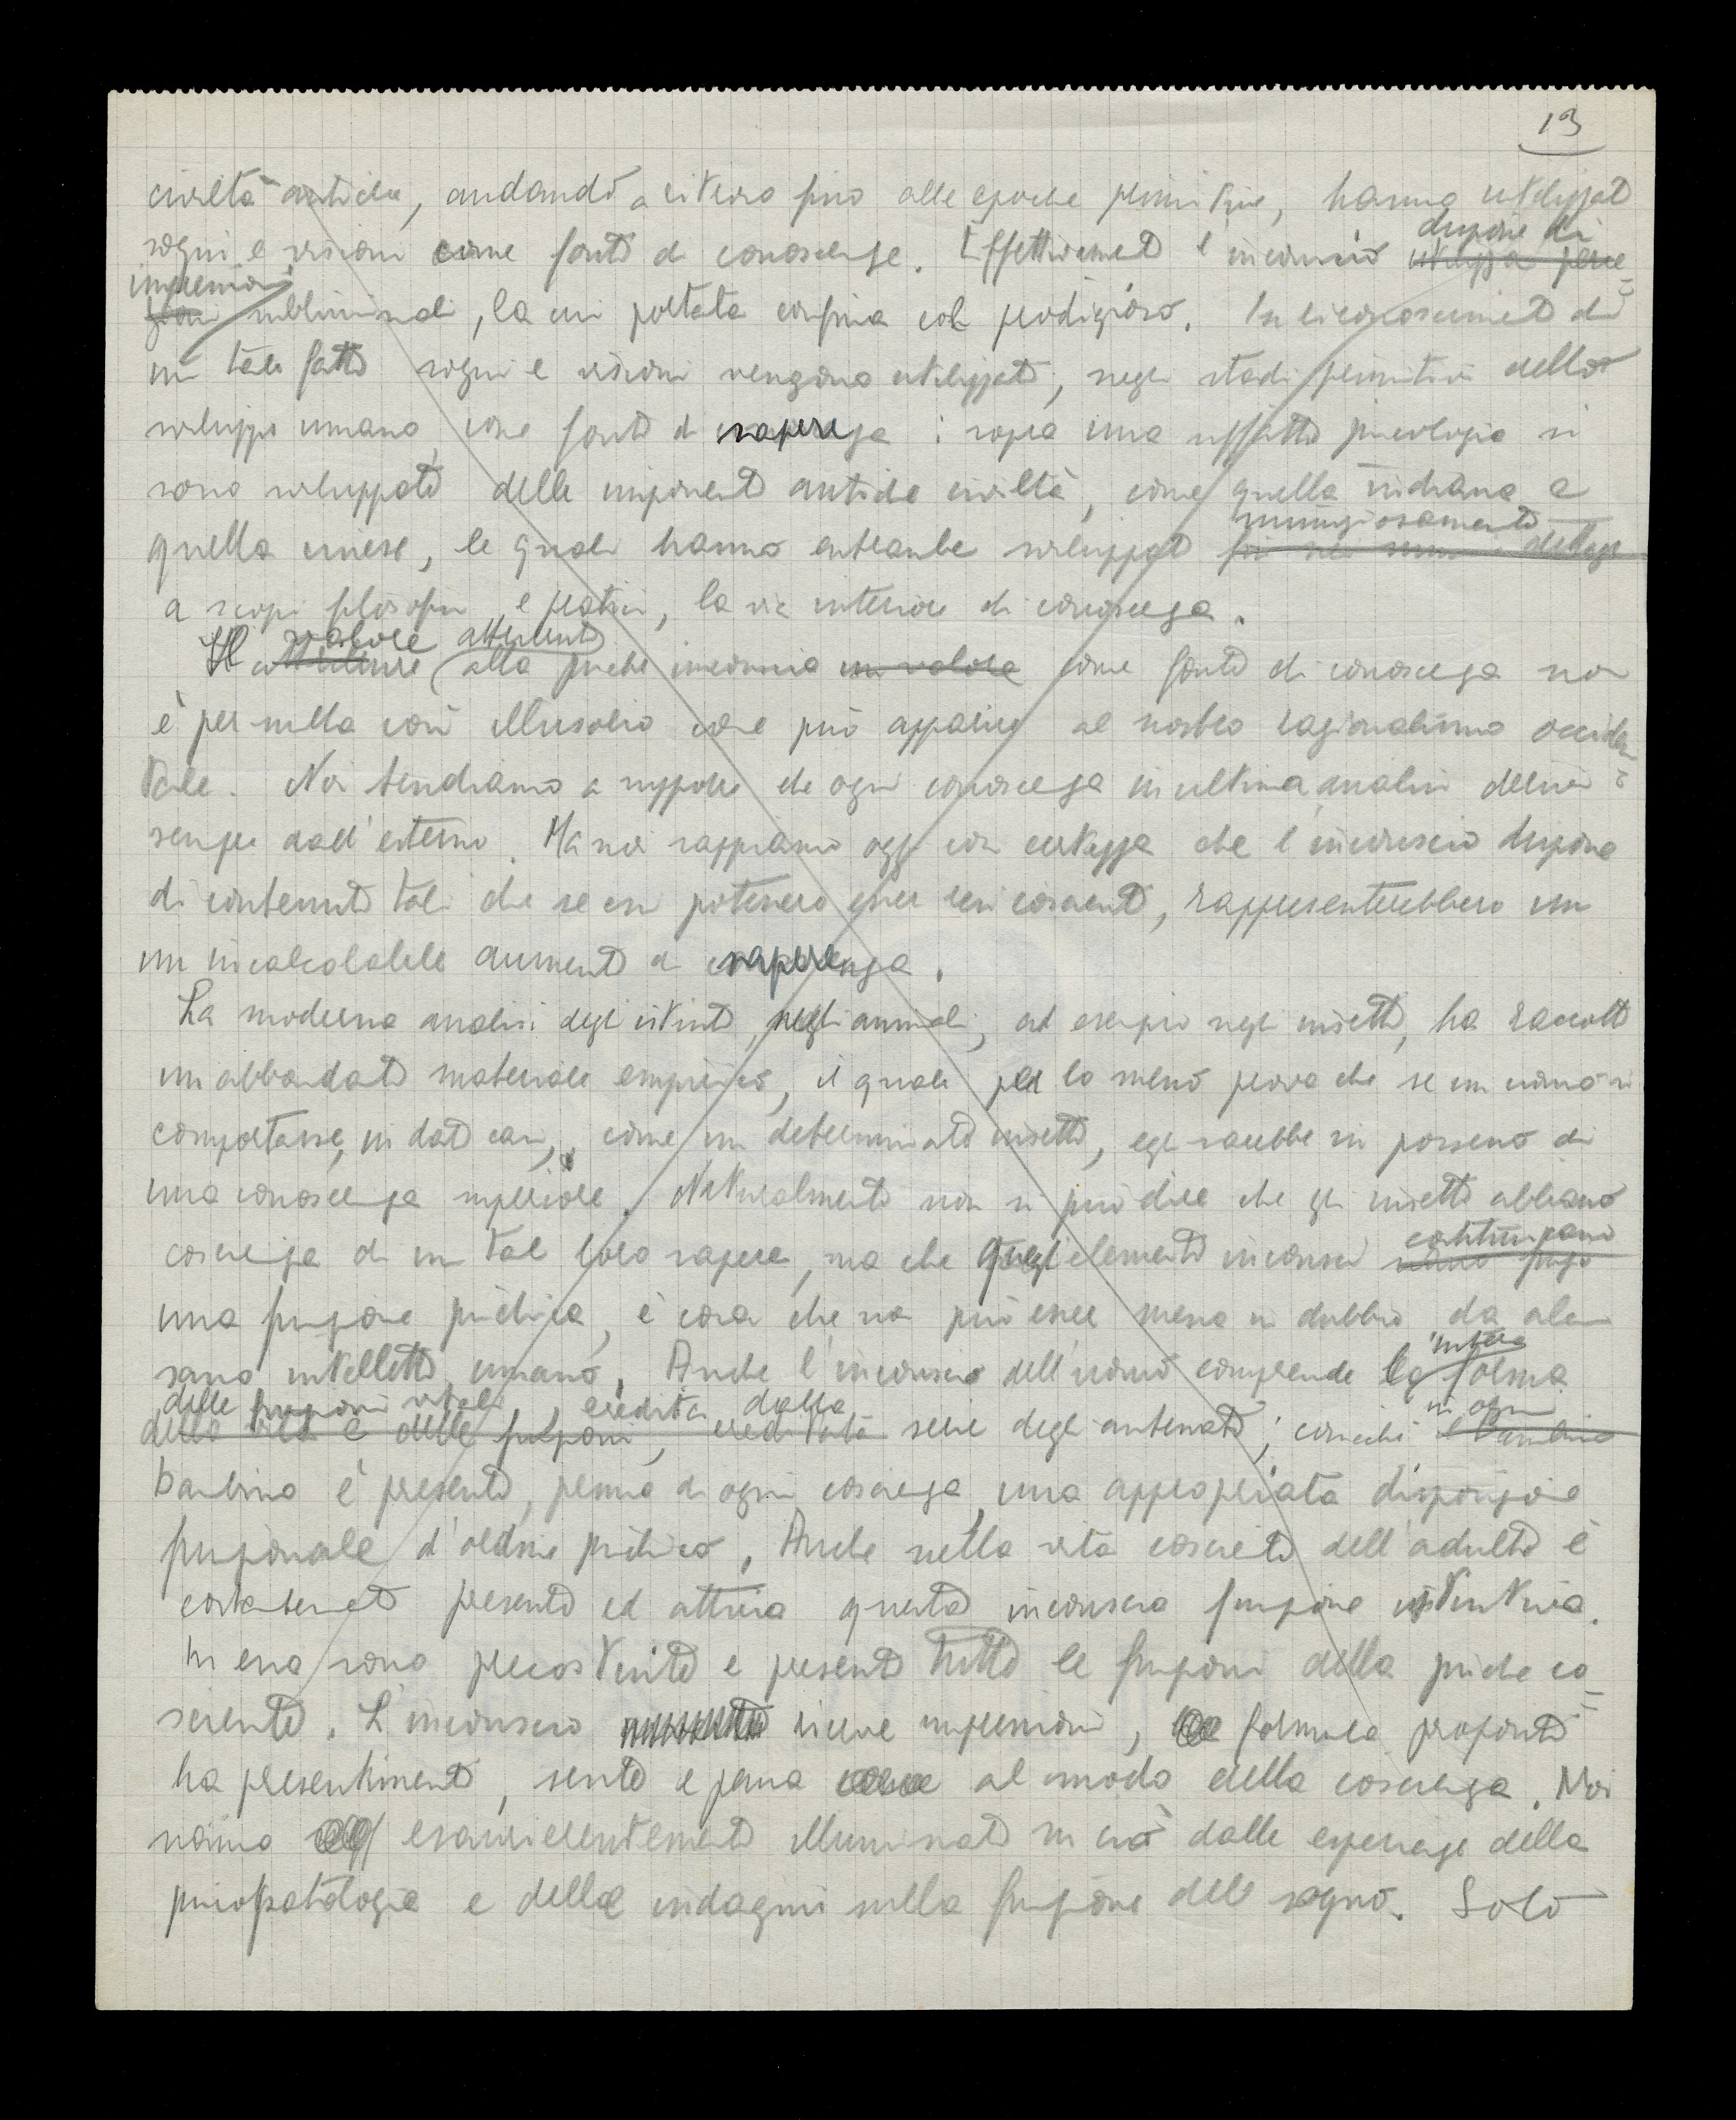 13
civiltà antiche, andando a ritroso fino alle epoche primitive, hanno utilizzato
dispone di
sogni e visioni come fonti di conoscenze. Effettivamente l'inconscio utilizza perce=
impressioni
zioni subliminali, la cui portata confina col prodigioso. In riconoscimento di
un tale fatto sogni e visioni vengono utilizzati, negli stadi primitivi dello
sviluppo umano, come fonti di sapere : sopra una siffatta psicologia si
sono sviluppate delle imponenti antiche civiltà, come quella indiana e
minuziosamente
quella cinese, le quali hanno entrambe sviluppato
a scopi filosofici e pratici, la via interiore di conoscenza.
valore attribuito
Il attribuire alla psiche inconscia un valore come fonte di conoscenza non
è per nulla così illusorio come può apparire al nostro razionalismo occiden=
tale. Noi tendiamo a supporre che ogni conoscenza in ultima analisi derivi
sempre dall'esterno. Ma noi sappiamo oggi con certezza che l'inconscio dispone
di contenuti tali che se essi potessero esser resi coscienti, rappresenterebbero un
un incalcolabile aumento di sapere.
La moderna analisi degli istinti, negli animali, ad esempio negli insetti, ha raccolto
un abbondante materiale empirico, il quale per lo meno prova che se un uomo si
comportasse, in dati casi, come un determinato insetto, egli sarebbe in possesso di
una conoscenza superiore. Naturalmente non si può dire che gli insetti abbiano
costituiscano
coscienza di un tale loro sapere, ma che quegli elementi inconsci siano
una funzione psichica, è cosa che non può esser messa in dubbio da alcun
intera
sano intelletto umano. Anche l'inconscio dell'uomo comprende la forma
delle funzioni vitali, ereditata dalla in ogni
della vita e delle funzioni, ereditata serie degli antenati; cosicché il bambino
bambino è presente, prima di ogni coscienza, una appropriata disposizione
funzionale d'ordine psichico. Anche nella vita cosciente dell'adulto è
costantemente presente ed attiva questa inconscia funzione istintiva.
In essa sono precostituite e presenti tutte le funzioni della psiche co=
sciente. L'inconscio riceve impressioni, formula propositi
ha presentimenti, sente e pensa al modo della coscienza. Noi
siamo esaurientemente illuminati su ciò dalle esperienze della
psicopatologia e dalle indagini sulla funzione del sogno. Solo